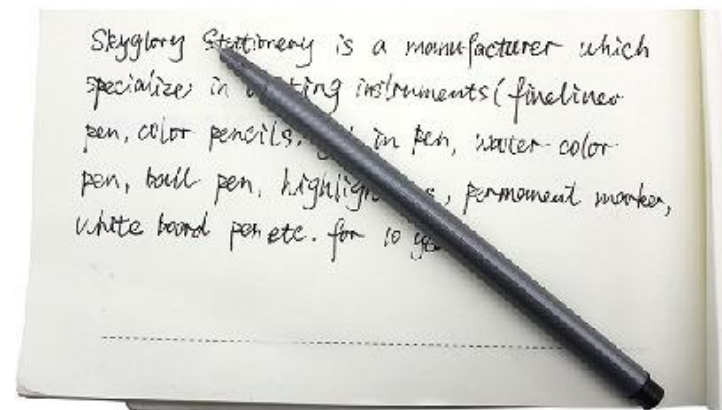 Skyglory Stationery is a manufacturer which
specializes in instruments (fineliner
pen, color pencils, in pen, water color
pen, ball pen, permanent marker,
white board pen etc. for 10